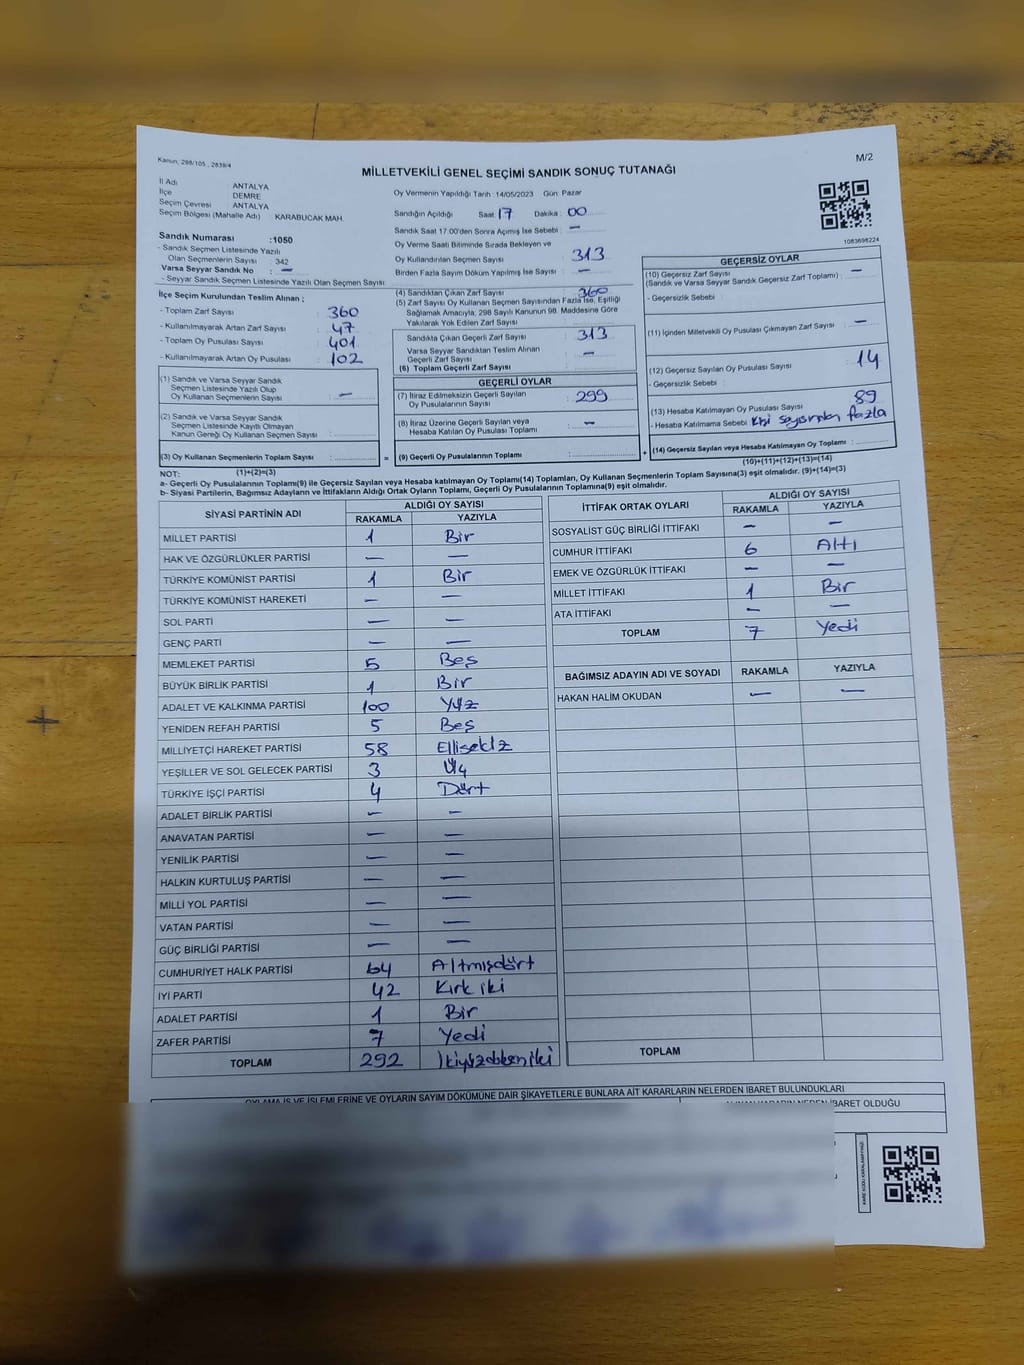 Kanun, 298/105 , 2839/4
M/2
MİLLETVEKİLİ GENEL SEÇİMİ SANDIK SONUÇ TUTANAĞI
İl Adı : ANTALYA
İlçe : DEMRE
Seçim Çevresi : ANTALYA
Seçim Bölgesi (Mahalle Adı) : KARABUCAK MAH.
Oy Vermenin Yapıldığı Tarih : 14/05/2023 Gün: Pazar
Sandığın Açıldığı Saat 17 Dakika : 00
Sandık Saat 17:00'den Sonra Açımış İse Sebebi : —
Oy Verme Saati Bitiminde Sırada Bekleyen ve
Oy Kullandırılan Seçmen Sayısı 313
Birden Fazla Sayım Döküm Yapılmış İse Sayısı : —
1083698224
Sandık Numarası :1050
- Sandık Seçmen Listesinde Yazılı
Olan Seçmenlerin Sayısı : 342
Varsa Seyyar Sandık No : —
- Seyyar Sandık Seçmen Listesinde Yazılı Olan Seçmen Sayısı
İlçe Seçim Kurulundan Teslim Alınan ;
- Toplam Zarf Sayısı : 360
- Kullanılmayarak Artan Zarf Sayısı : 47
- Toplam Oy Pusulası Sayısı : 401
- Kullanılmayarak Artan Oy Pusulası : 102
(1) Sandık ve Varsa Seyyar Sandık
Seçmen Listesinde Yazılı Olup
Oy Kullanan Seçmenlerin Sayısı : —
(2) Sandık ve Varsa Seyyar Sandık
Seçmen Listesinde Kayıtlı Olmayan
Kanun Gereği Oy Kullanan Seçmen Sayısı :
(3) Oy Kullanan Seçmenlerin Toplam Sayısı :
(4) Sandıktan Çıkan Zarf Sayısı : 360
(5) Zarf Sayısı Oy Kullanan Seçmen Sayısından Fazla İse, Eşitliği
Sağlamak Amacıyla, 298 Sayılı Kanunun 98. Maddesine Göre
Yakılarak Yok Edilen Zarf Sayısı :
Sandıkta Çıkan Geçerli Zarf Sayısı : 313
Varsa Seyyar Sandıktan Teslim Alınan
Geçerli Zarf Sayısı : —
(6) Toplam Geçerli Zarf Sayısı :
GEÇERLİ OYLAR
(7) İtiraz Edilmeksizin Geçerli Sayılan
Oy Pusulalarının Sayısı : 299
(8) İtiraz Üzerine Geçerli Sayılan veya
Hesaba Katılan Oy Pusulası Toplamı : —
(9) Geçerli Oy Pusulalarının Toplamı :
GEÇERSİZ OYLAR
(10) Geçersiz Zarf Sayısı : —
(Sandık ve Varsa Seyyar Sandık Geçersiz Zarf Toplamı)
- Geçersizlik Sebebi :
(11) İçinden Milletvekili Oy Pusulası Çıkmayan Zarf Sayısı : —
(12) Geçersiz Sayılan Oy Pusulası Sayısı : 14
- Geçersizlik Sebebi :
(13) Hesaba Katılmayan Oy Pusulası Sayısı : 89
- Hesaba Katılmama Sebebi : Kişi sayısından fazla
(14) Geçersiz Sayılan veya Hesaba Katılmayan Oy Toplamı :
NOT: (1)+(2)=(3)
(10)+(11)+(12)+(13)=(14)
a- Geçerli Oy Pusulalarının Toplamı(9) ile Geçersiz Sayılan veya Hesaba katılmayan Oy Toplamı(14) Toplamları, Oy Kullanan Seçmenlerin Toplam Sayısına(3) eşit olmalıdır. (9)+(14)=(3)
b- Siyasi Partilerin, Bağımsız Adayların ve İttifakların Aldığı Ortak Oyların Toplamı, Geçerli Oy Pusulalarının Toplamına(9) eşit olmalıdır.
SİYASİ PARTİNİN ADI ALDIĞI OY SAYISI
RAKAMLA YAZIYLA
MİLLET PARTİSİ 1 Bir
HAK VE ÖZGÜRLÜKLER PARTİSİ — —
TÜRKİYE KOMÜNİST PARTİSİ 1 Bir
TÜRKİYE KOMÜNİST HAREKETİ — —
SOL PARTİ — —
GENÇ PARTİ — —
MEMLEKET PARTİSİ 5 Beş
BÜYÜK BİRLİK PARTİSİ 1 Bir
ADALET VE KALKINMA PARTİSİ 100 Yüz
YENİDEN REFAH PARTİSİ 5 Beş
MİLLİYETÇİ HAREKET PARTİSİ 58 Ellisekiz
YEŞİLLER VE SOL GELECEK PARTİSİ 3 Üç
TÜRKİYE İŞÇİ PARTİSİ 4 Dört
ADALET BİRLİK PARTİSİ — —
ANAVATAN PARTİSİ — —
YENİLİK PARTİSİ — —
HALKIN KURTULUŞ PARTİSİ — —
MİLLİ YOL PARTİSİ — —
VATAN PARTİSİ — —
GÜÇ BİRLİĞİ PARTİSİ — —
CUMHURİYET HALK PARTİSİ 64 Altmışdört
İYİ PARTİ 42 Kırk iki
ADALET PARTİSİ 1 Bir
ZAFER PARTİSİ 7 Yedi
TOPLAM 292 İkiyüzdokseniki
İTTİFAK ORTAK OYLARI ALDIĞI OY SAYISI
RAKAMLA YAZIYLA
SOSYALİST GÜÇ BİRLİĞİ İTTİFAKI — —
CUMHUR İTTİFAKI 6 Altı
EMEK VE ÖZGÜRLÜK İTTİFAKI — —
MİLLET İTTİFAKI 1 Bir
ATA İTTİFAKI — —
TOPLAM 7 Yedi
BAĞIMSIZ ADAYIN ADI VE SOYADI RAKAMLA YAZIYLA
HAKAN HALİM OKUDAN — —
TOPLAM
OYLAMA İŞ VE İŞLEMLERİNE VE OYLARIN SAYIM DÖKÜMÜNE DAİR ŞİKAYETLERLE BUNLARA AİT KARARLARIN NELERDEN İBARET BULUNDUKLARI
İBARET OLDUĞU